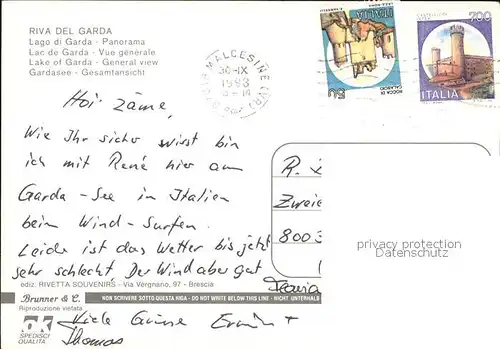 RIVA DEL GARDA
Lago di Garda - Panorama
Lac de Garde - Vue générale
Lake of Garda - General view
Gardasee - Gesamtansicht
MALCESINE (VR)
30-IX
1993
ROCCA DI CALASCIO
ITALIA
50
700
ITALIA
Hoi Zäme,
Wie Ihr sicher wisst bin
ich mit René hier am
Garda-See in Italien
beim Wind-Surfen.
Leider ist das Wetter bis jetzt
sehr schlecht. Der Wind aber gut
R.
Zweie
8003
privacy protection
Oldthing.de
Ansichtskarten.de
ediz. RIVETTA SOUVENIRS - Via Vergnano, 97 - Brescia
Brunner & C.
Riproduzione vietata
NON SCRIVERE SOTTO QUESTA RIGA - DO NOT WRITE BELOW THIS LINE - NICHT UNTERHALB
SPEDISCI
QUALITÀ
Viele Grüsse Erwin +
Thomas